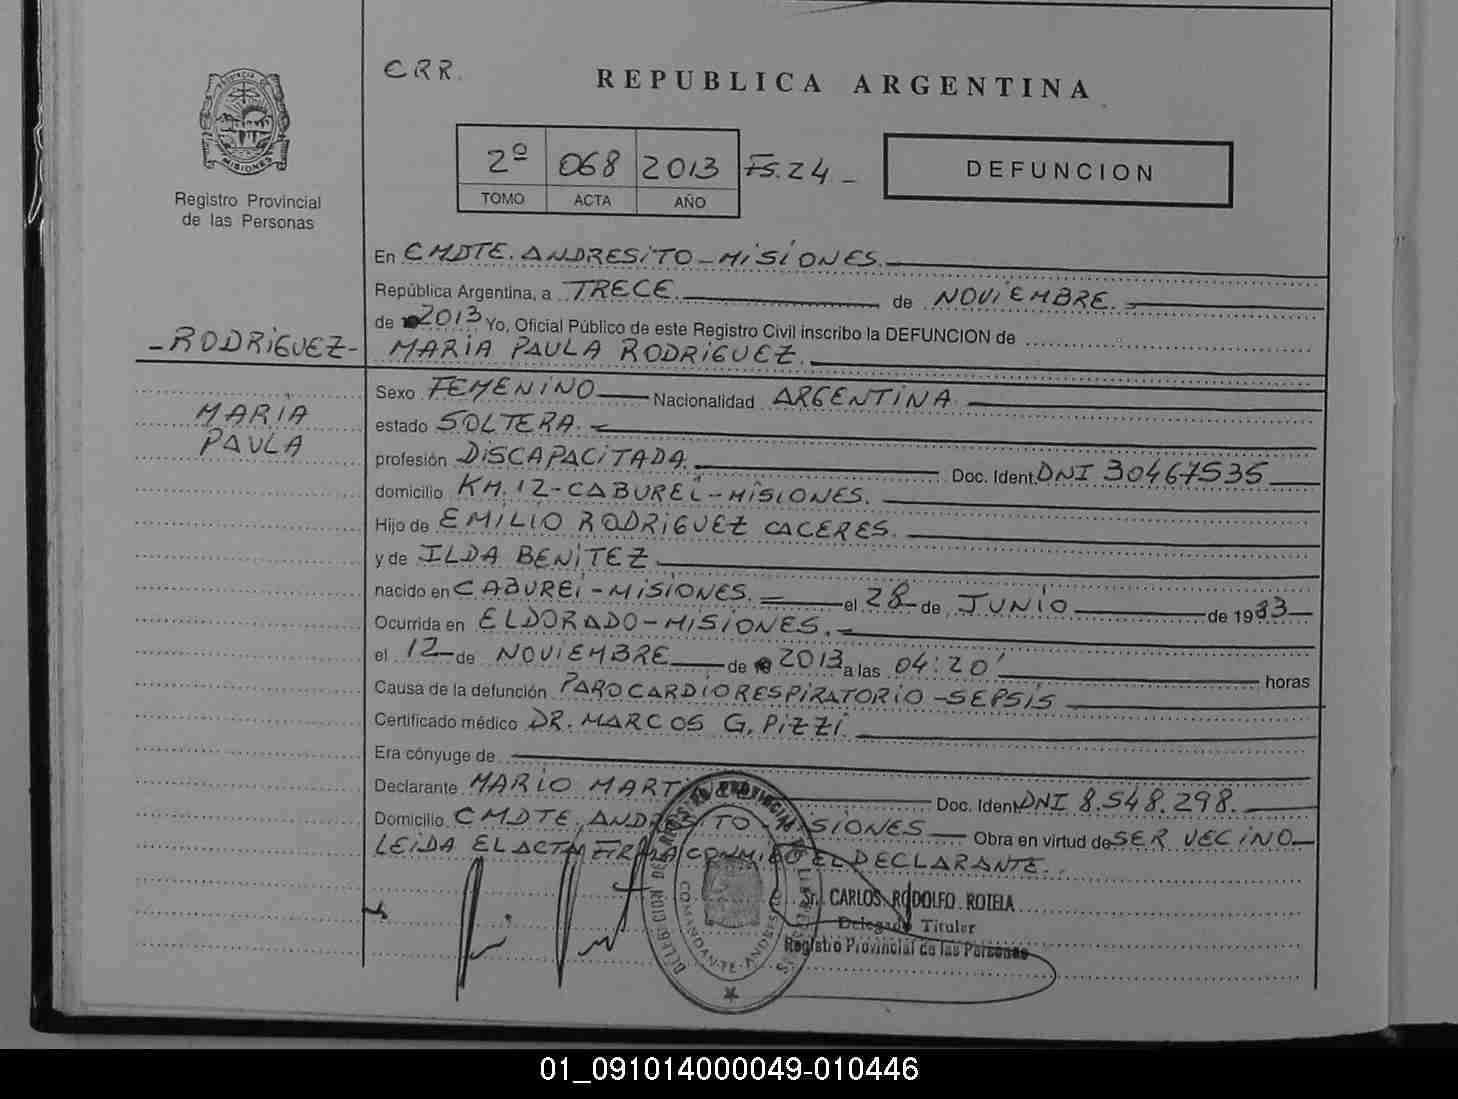 CRR.
REPUBLICA ARGENTINA
PROVINCIA DE
MISIONES
Registro Provincial
de las Personas
2º 068 2013 Fs. 24 -
TOMO ACTA AÑO
DEFUNCION
En CMDTE. ANDRESITO - MISIONES.
República Argentina, a TRECE. de NOVIEMBRE.
de 2013 Yo, Oficial Público de este Registro Civil inscribo la DEFUNCION de
- RODRIGUEZ - MARIA PAULA RODRIGUEZ.
MARIA
PAULA
Sexo FEMENINO Nacionalidad ARGENTINA
estado SOLTERA.
profesión DISCAPACITADA. Doc. Ident. DNI 30467535
domicilio KM. 12 - CABUREÍ - MISIONES.
Hijo de EMILIO RODRIGUEZ CACERES.
y de ILDA BENITEZ
nacido en CABUREI - MISIONES. el 28 de JUNIO de 1983
Ocurrida en ELDORADO - MISIONES.
el 12 de NOVIEMBRE de 2013 a las 04:20' horas
Causa de la defunción PAROCARDIORESPIRATORIO - SEPSIS
Certificado médico DR. MARCOS G. PIZZI.
Era cónyuge de
Declarante MARIO Doc. Ident. DNI 8.548.298.
Domicilio CMDTE. ANDRESITO - MISIONES Obra en virtud de SER VECINO
LEIDA EL ACTA FIRMA CONMIGO EL DECLARANTE.
Sr. CARLOS RODOLFO ROTELA
Delegado Titular
Registro Provincial de las Personas
01_091014000049-010446